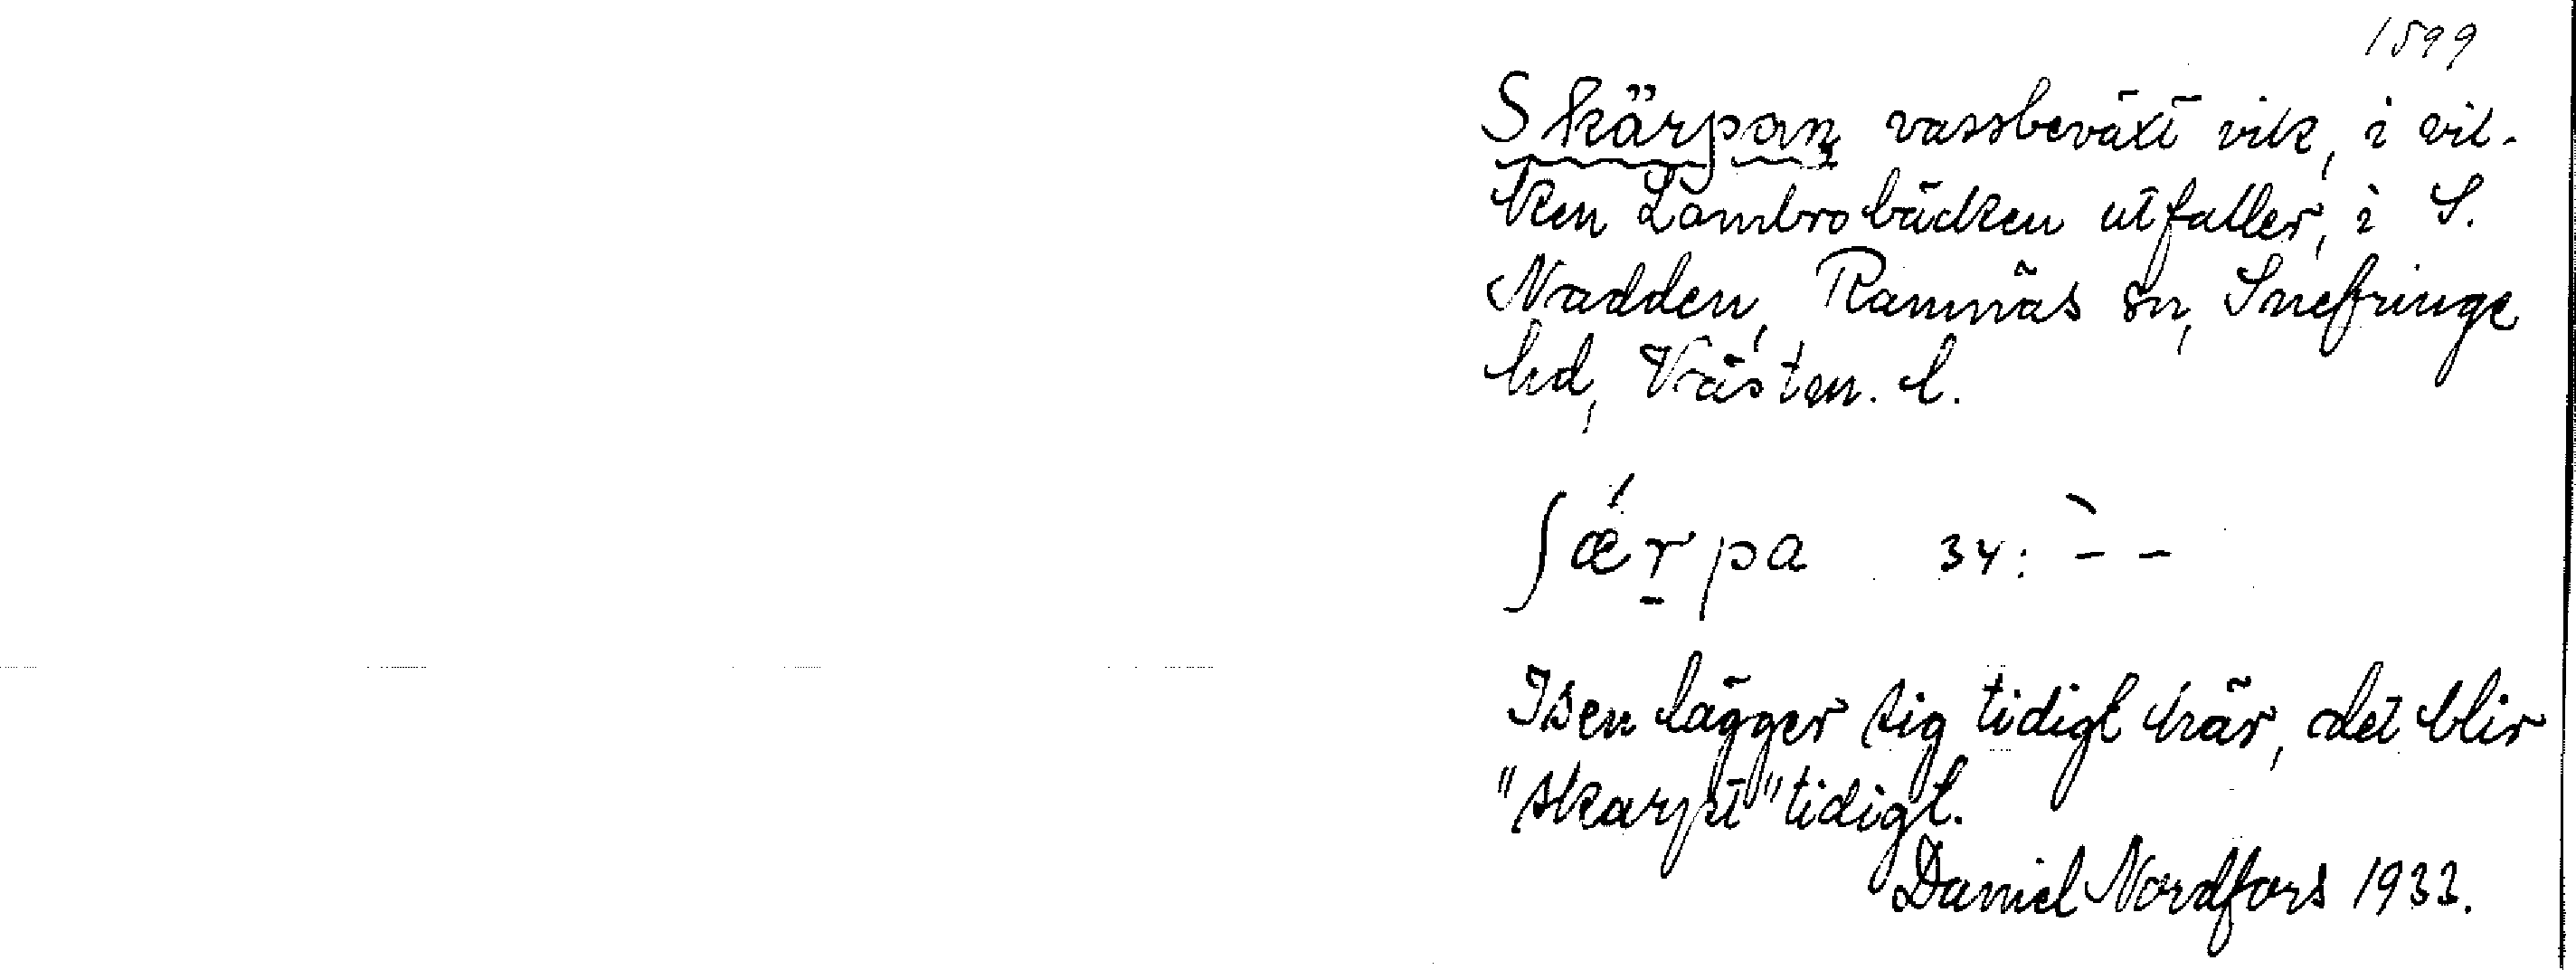 1599
Skärpan, vassbeväxt vik, i vil-
ken Lambrobäcken utfaller, i S.
Nadden, Ramnäs sn, Snefringe
hd, Västm. l.
ʃǽr̠pa 34: ̀– –
Isen lägger sig tidigt här, det blir
"skarpt" tidigt.
Daniel Nordfors 1933.